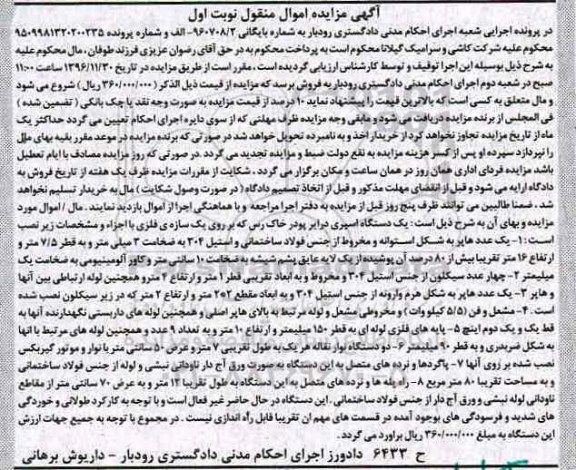 آگهی مزایده اموال منقول نوبت اول
در پرونده اجرایی شعبه اجرای احکام مدنی دادگستری رودبار به شماره بایگانی ۹۶۰۷۰۸/۲- الف و شماره پرونده ۹۵۰۹۹۸۱۳۲۰۲۰۰۲۳۵
محکوم علیه شرکت کاشی و سرامیک گیلانا محکوم است به پرداخت محکوم به در حق آقای رضوان عزیزی فرزند طوفان ، مال محکوم علیه
به شرح ذیل بوسیله این اجرا توقیف و توسط کارشناس ارزیابی گردیده است ، مقرر است از طریق مزایده در تاریخ ۱۳۹۶/۱۱/۳۰ ساعت ۱۱:۰۰
صبح در شعبه دوم اجرای احکام مدنی دادگستری رودبار به فروش برسد که مزایده از قیمت ذیل الذکر ( ۳۶۰/۰۰۰/۰۰۰ ریال ) شروع می شود
و مال متعلق به کسی است که بالاترین قیمت را پیشنهاد نماید ۱۰ درصد از قیمت مزایده به صورت وجه نقد یا چک بانکی ( تضمین شده )
فی المجلس از برنده مزایده دریافت می شود و مابقی وجه مزایده ظرف مهلتی که از سوی دایره اجرای احکام تعیین می گردد حداکثر یک
ماه از تاریخ مزایده تجاوز نخواهد کرد از خریدار اخذ و به نامبرده تحویل خواهد شد در صورتی که برنده مزایده در موعد مقرر بقیه بهای مال
را نپردازد سپرده او پس از کسر هزینه مزایده به نفع دولت ضبط و مزایده تجدید می گردد .در صورتی که روز مزایده مصادف با ایام تعطیل
باشد مزایده فردای اداری همان روز در همان ساعت و مکان برگزار می گردد . شکایت از مقررات مزایده ظرف یک هفته از تاریخ فروش به
دادگاه ارایه می شود و قبل از انقضای مهلت مذکور و قبل از اتخاذ تصمیم دادگاه ( در صورت وصول شکایت ) مال به خریدار تسلیم نخواهد
شد ، ضمنا طالبین می توانند ظرف پنج روز قبل از مزایده به دفتر اجرا مراجعه و با هماهنگی اجرا از اموال بازدید نمایند . مال / اموال مورد
مزایده و بهای آن به شرح ذیل است : یک دستگاه اسپری درایر پودر خاک رس که بر روی یک سازه ی فلزی با اجزاء و مشخصات زیر نصب
است : ۱- یک عدد هاپر به شکل استوانه و مخروط از جنس فولاد ساختمانی و استیل ۳۰۴ به ضخامت ۳ میلی متر و به قطر ۷/۵ متر و
ارتفاع ۱۶ متر تقریبا بیش از ۸۰ درصد آن پوشیده از یک لایه عایق پشم شیشه به ضخامت ۱۰ سانتی متر و کاور آلومینیومی به ضخامت یک
میلیمتر ۲- چهار عدد سیکلون از جنس استیل ۳۰۴ و مخروط و به ابعاد تقریبی قطر ۱ متر و ارتفاع ۴ متر و همچنین لوله ارتباطی بین آنها
و هاپر ۳- یک عدد هاپر به شکل هرم وارونه از جنس استیل ۳۰۴ و به ابعاد مقطع ۲*۲ متر و ارتفاع ۲ متر که در زیر سیکلون نصب شده
است . ۴- مشعل و فن (۵/۵ کیلو وات ) و مخروطی مشعل و لوله مرتبط به بالای هاپر اصلی و همچنین لوله های داربستی نگهدارنده آنها به
قط یک و یک دوم اینچ ۵- پایه های فلزی لوله ای به قطر ۱۵۰ میلیمتر و ارتفاع ۱۰ متر و به تعداد ۹ عدد و همچنین لوله های مرتبط با آنها
به شکل ضربدری و به قطر ۹۰ میلیمتر ۶- دو دستگاه نوار نقاله هر یک به طول تقریبی ۷ متر و عرض ۵۰ سانتی متر با نوار و موتور گیربکس
نصب شده بر روی آنها ۷- پاگردها و نرده های متصل به این دستگاه به صورت ورق آج دار ناودانی نبشی و لوله از جنس فولاد ساختمانی
و به مساحت تقریبا ۸۰ متر مربع ۸- راه پله ها و نرده های متصل به این دستگاه به طول تقریبا ۱۲ متر و به عرض ۷۰ سانتی متر از مقاطع
ناودانی لوله نبشی و ورق آج دار از جنس فولاد ساختمانی . این دستگاه در حال حاضر غیر فعال است و با توجه به کارکرد طولانی و خوردگی
های شدید و فرسودگی های بوجود آمده در قسمت های مهم ان تقریبا قابل راه اندازی نیست . در مجموع با توجه به جمیع جهات ارزش
این دستگاه به مبلغ ۳۶۰/۰۰۰/۰۰۰ ریال براورد می گردد .
ح ۶۴۳۳ دادورز اجرای احکام مدنی دادگستری رودبار – داریوش برهانی